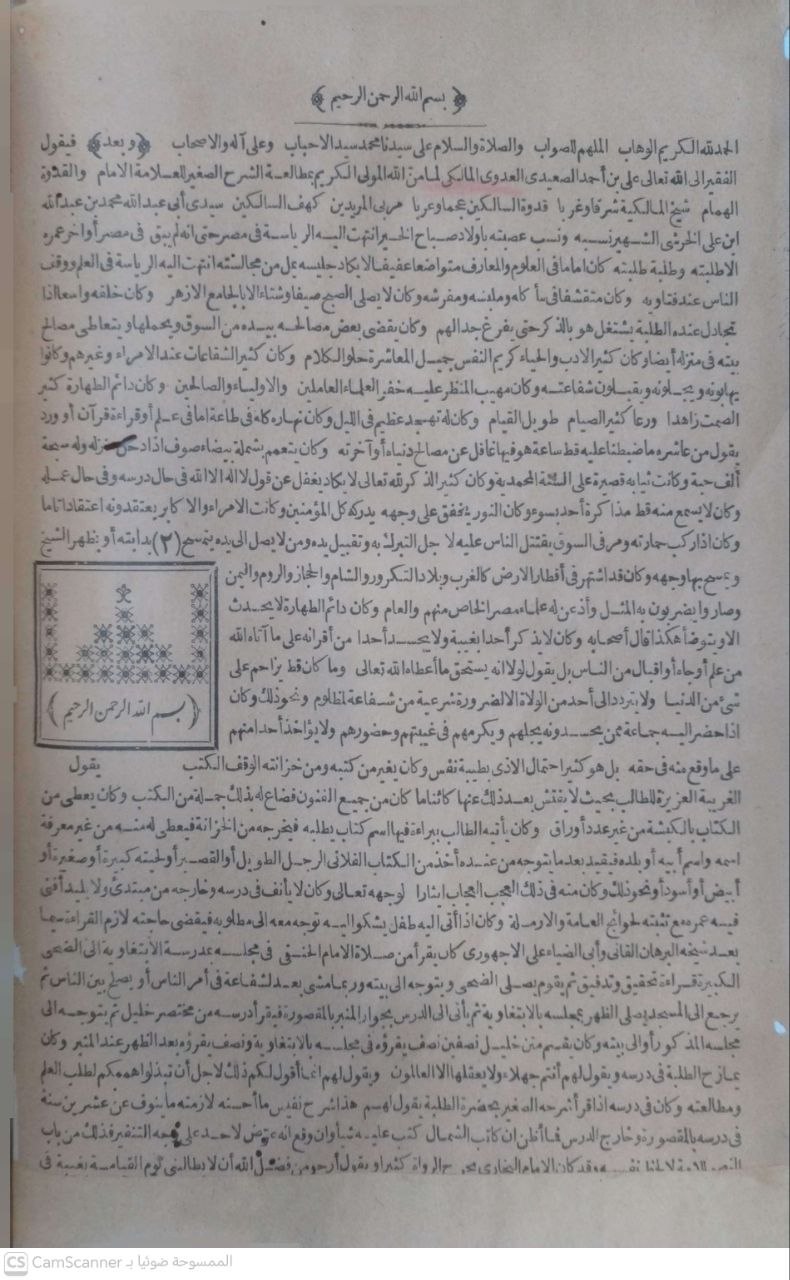 ﴿ بسم الله الرحمن الرحيم ﴾
الحمد لله الكريم الوهاب الملهم للصواب والصلاة والسلام على سيدنا محمد سيد الاحباب وعلى آله والاصحاب ﴿وبعد﴾ فيقول
الفقير الى الله تعالى على بن أحمد الصعيدى العدوى المالكى لما من الله المولى الكريم بمطالعة الشرح الصغير للعلامة الامام والقدوة
الهمام شيخ المالكية شرقا وغربا قدوة السالكين عجما وعربا مربى المريدين كهف السالكين سيدى أبى عبد الله محمد بن عبد الله
ابن على الخرشى الشهير نسبه ونسب عصبته باولاد صباح الخير انتهت اليه الرياسة فى مصر حتى انه لم يبق فى مصر أواخر عمره
الاطلبته وطلبة طلبته كان اماما فى العلوم والمعارف متواضعا عفيفا لا يكاد جليسه يمل من مجالسته انتهت اليه الرياسة فى العلم ووقف
الناس عند فتاويه وكان متقشفا فى مأكله وملبسه ومفرشه وكان لا يصلى الصبح صيفا وشتاء الا بالجامع الازهر وكان خلقه واسعا اذا
تجادل عنده الطلبة يشتغل هو بالذكر حتى يفرغ جدالهم وكان يقضى بعض مصالحه بيده من السوق ويحملها ويتعاطى مصالح
بيته فى منزله أيضا وكان كثير الادب والحياء كريم النفس جميل المعاشرة حلو الكلام وكان كثير الشفاعات عند الامراء وغيرهم وكانوا
يهابونه ويجلونه ويقبلون شفاعته وكان مهيب المنظر عليه خفر العلماء العاملين والاولياء والصالحين وكان دائم الطهارة كثير
الصمت زاهدا ورعا كثير الصيام طويل القيام وكان له تهجد عظيم فى الليل وكان نهاره كله فى طاعة اما فى علم أو قراءة قرآن أو ورد
يقول من عاشره ما ضبطنا عليه قط ساعة هو فيها غافل عن مصالح دنياه أو آخرته وكان يتعمم بشملة بيضاء صوف اذا دخل منزله وله سبحة
ألف حبة وكانت ثيابه قصيرة على السنة المحمدية وكان كثير الذكر لله تعالى لا يكاد يغفل عن قول لا اله الا الله فى حال درسه وفى حال عمله
وكان لا يسمع منه قط مذاكرة أحد بسوء وكان النور يخفق على وجهه يدركه كل المؤمنين وكانت الامراء والاكابر يعتقدونه اعتقادا تاما
وكان اذا ركب حمارته ومر فى السوق يقتتل الناس عليه لاجل التبرك به وتقبيل يده ومن لا يصل الى يده يتمسح (٢) بدابته أو بظهر الشيخ
ويمسح بها وجهه وكان قد اشتهر فى أقطار الارض كالغرب وبلاد التكرور والشام والحجاز والروم واليمن
وصاروا يضربون به المثل وأذعن له علماء مصر الخاص منهم والعام وكان دائم الطهارة لا يحدث
الا ويتوضأ هكذا قال أصحابه وكان لا يذكر أحدا بغيبة ولا يحسد أحدا من أقرانه على ما آتاه الله
من علم أو جاه أو اقبال من الناس بل يقول لولا انه يستحق ما أعطاه الله تعالى وما كان قط يزاحم على
شئ من الدنيا ولا يتردد الى أحد من الولاة الا لضرورة شرعية من شفاعة لمظلوم ونحو ذلك وكان
﴿ بسم الله الرحمن الرحيم ﴾
اذا حضر اليه جماعة ممن يحسدونه يبجلهم ويكرمهم فى غيبتهم وحضورهم ولا يؤاخذ أحدا منهم
على ما وقع منه فى حقه بل هو كثير احتمال الاذى بطيبة نفس وكان يعير من كتبه ومن خزانته الوقف الكتب يقول
الغريبة العزيزة للطالب بحيث لا يفتش بعد ذلك عنها كائنا ما كان من جميع الفنون فضاع له بذلك جملة من الكتب وكان يعطى من
الكتاب بالكبشة من غير عدد أوراق وكان يأتيه الطالب ببراءة فيها اسم كتاب يطلبه فيخرجه من الخزانة فيعطى له منه من غير معرفة
اسمه واسم أبيه أو بلده فيقيد بعد ما يتوجه من عنده أخذ من الكتاب الفلانى الرجل الطويل أو القصير أو لحيته كبيرة أو صغيرة أو
أبيض أو أسود أو نحو ذلك وكان منه فى ذلك العجب العجاب ايثارا لوجهه تعالى وكان لا يأنف فى درسه وخارجه من مبتدئ ولا بليد أفنى
فيه عمره مع تثبته لحوائج العامة والارملة وكان اذا أتى اليه طفل يشكو اليه توجه معه الى مطلوبه فيقضى حاجته لازم القراءة سيما
بعد شيخه البرهان القانى وأبى الضياء على الاجهورى كان يقرأ من صلاة الامام الحنفى فى مجلسه بمدرسة الابتغاوية الى الضحى
الكبيرة قراءة تحقيق وتدقيق ثم يقوم يصلى الضحى ويتوجه الى بيته وربما مشى بعد لشفاعة فى أمر الناس أو يصلح بين الناس ثم
يرجع الى المسجد يصلى الظهر بمجلسه بالابتغاوية ثم يأتى الى الدرس بجوار المنبر بالمقصورة فيقرأ درسه من مختصر خليل ثم يتوجه الى
مجلسه المذكور أو الى بيته وكان يقسم متن خليل نصفين نصف يقرؤه فى مجلسه بالابتغاوية ونصف يقرؤه بعد الظهر عند المنبر وكان
يمازح الطلبة فى درسه ويقول لهم أنتم جهلاء ولا يعقلها الا العالمون ويقول لهم انما أقول لكم ذلك لاجل أن تبذلوا هممكم لطلب العلم
ومطالعته وكان فى درسه اذا قرأ شرحه الصغير بحضرة الطلبة يقول لهم هذا شرح نفيس ما أحسنه لازمته ما ينوف عن عشرين سنة
فى درسه بالمقصورة وخارج الدرس فما أظن ان كاتب الشمال كتب عليه شيأ وان وقع انه عرض لاحد على وجه التنفير فذلك من باب
نفسه وقد كان الامام البخارى الرواة كثيرا ويقول أرجو من فضل الله أن لا يطالبنى يوم القيامة بغيبة فى
الممسوحة ضوئيا بـ CamScanner
CS